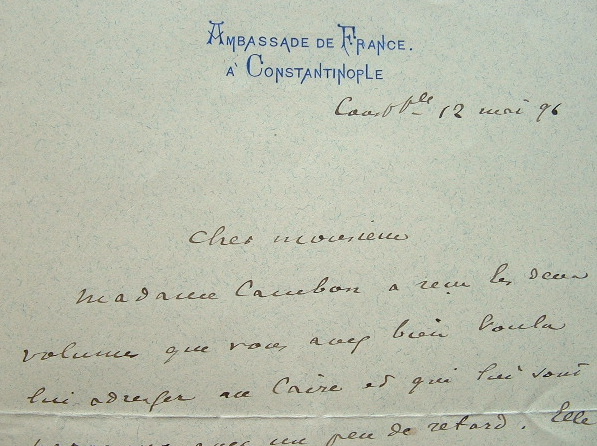 AMBASSADE DE FRANCE.
A' CONSTANTINOPLE
Const ple 12 mai 96
cher monsieur
Madame Cambon a reçu les deux
volumes que vous avez bien voulu
lui adresser au Caire et qui lui sont
avec un peu de retard. Elle